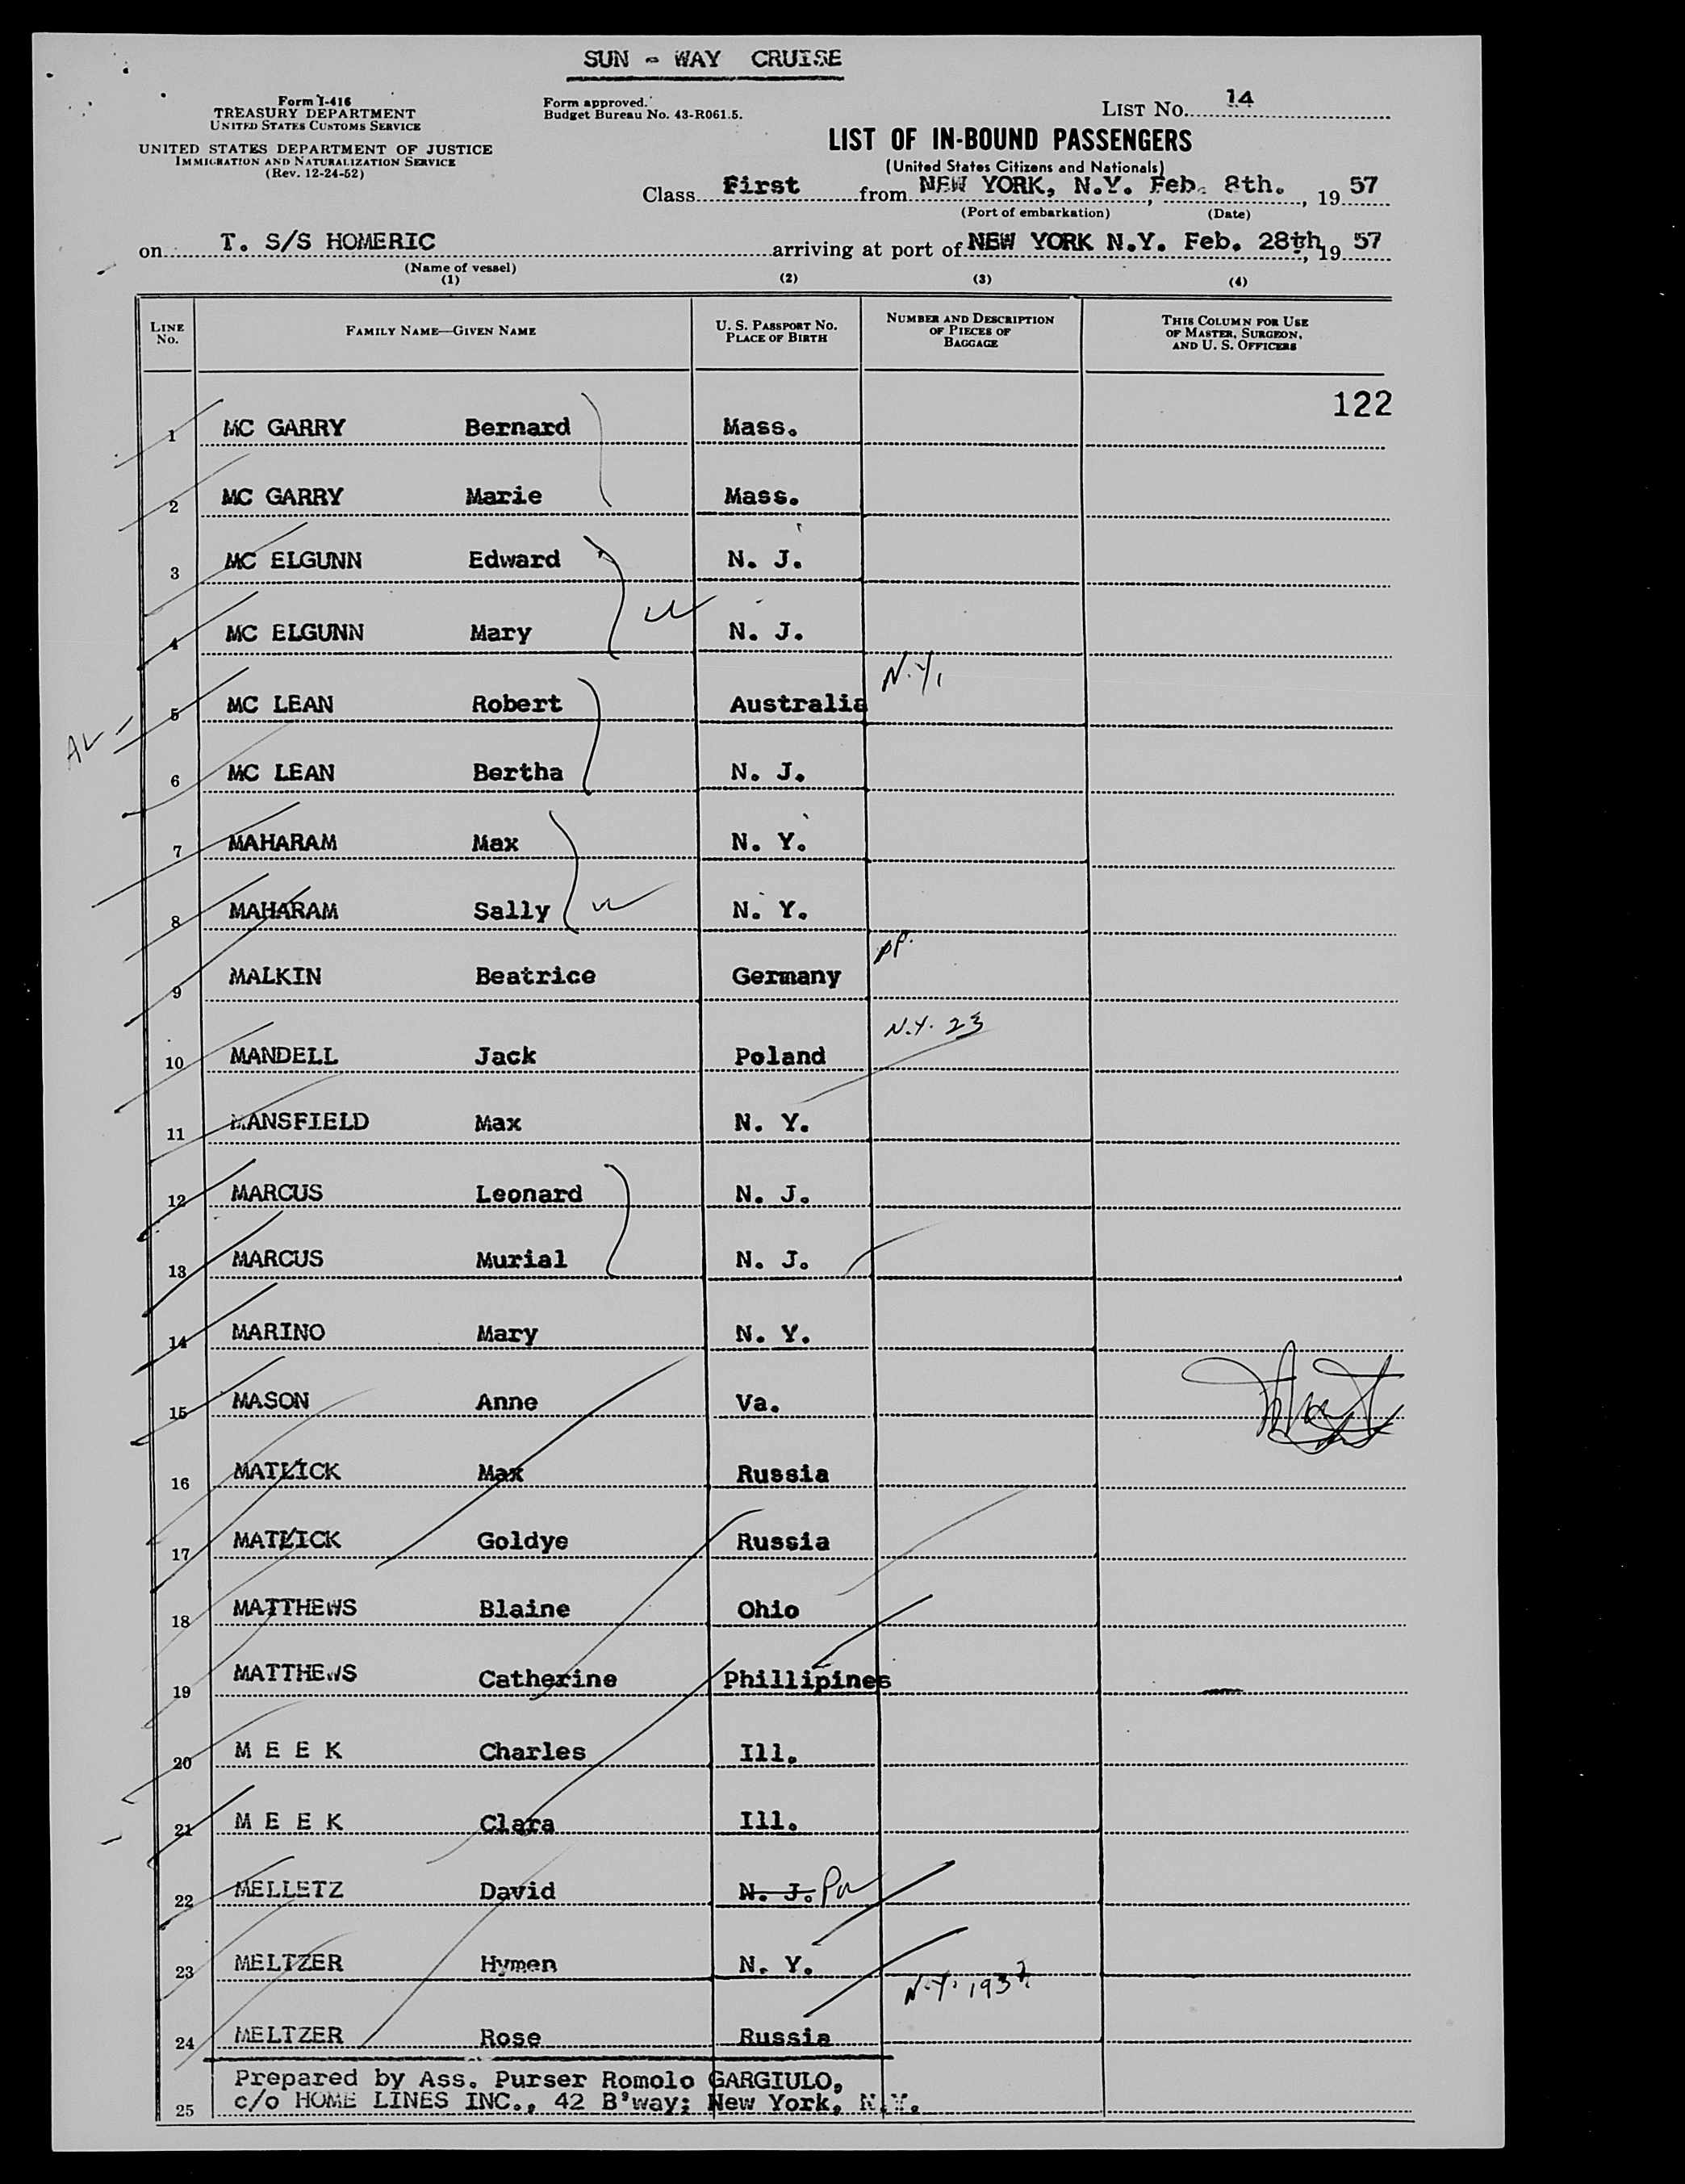 SUN - WAY CRUISE
Form I-416
TREASURY DEPARTMENT
UNITED STATES CUSTOMS SERVICE
UNITED STATES DEPARTMENT OF JUSTICE
IMMIGRATION AND NATURALIZATION SERVICE
(Rev. 12-24-52)
Form approved.
Budget Bureau No. 43-R061.5.
LIST No. 14
LIST OF IN-BOUND PASSENGERS
(United States Citizens and Nationals)
Class First from NEW YORK, N.Y. Feb. 8th., 19 57
(Port of embarkation) (Date)
on T. S/S HOMERIC arriving at port of NEW YORK N.Y. Feb. 28th, 19 57
(Name of vessel)
(1) (2) (3) (4)
LINE No. FAMILY NAME—GIVEN NAME U. S. PASSPORT No. PLACE OF BIRTH NUMBER AND DESCRIPTION OF PIECES OF BAGGAGE THIS COLUMN FOR USE OF MASTER, SURGEON, AND U. S. OFFICERS
122
1 MC GARRY Bernard Mass.
2 MC GARRY Marie Mass.
3 MC ELGUNN Edward N. J.
4 MC ELGUNN Mary N. J.
5 MC LEAN Robert Australia N.Y.
6 MC LEAN Bertha N. J.
7 MAHARAM Max N. Y.
8 MAHARAM Sally N. Y.
9 MALKIN Beatrice Germany PP.
10 MANDELL Jack Poland N.Y. 23
11 MANSFIELD Max N. Y.
12 MARCUS Leonard N. J.
13 MARCUS Murial N. J.
14 MARINO Mary N. Y.
15 MASON Anne Va.
16 MATLICK Max Russia
17 MATLICK Goldye Russia
18 MATTHEWS Blaine Ohio
19 MATTHEWS Catherine Phillipines
20 M E E K Charles Ill.
21 M E E K Clara Ill.
22 MELLETZ David N. J. Pa
23 MELTZER Hymen N. Y.
N.Y. 1937
24 MELTZER Rose Russia
Prepared by Ass. Purser Romolo GARGIULO,
25 c/o HOME LINES INC., 42 B'way; New York, N.Y.